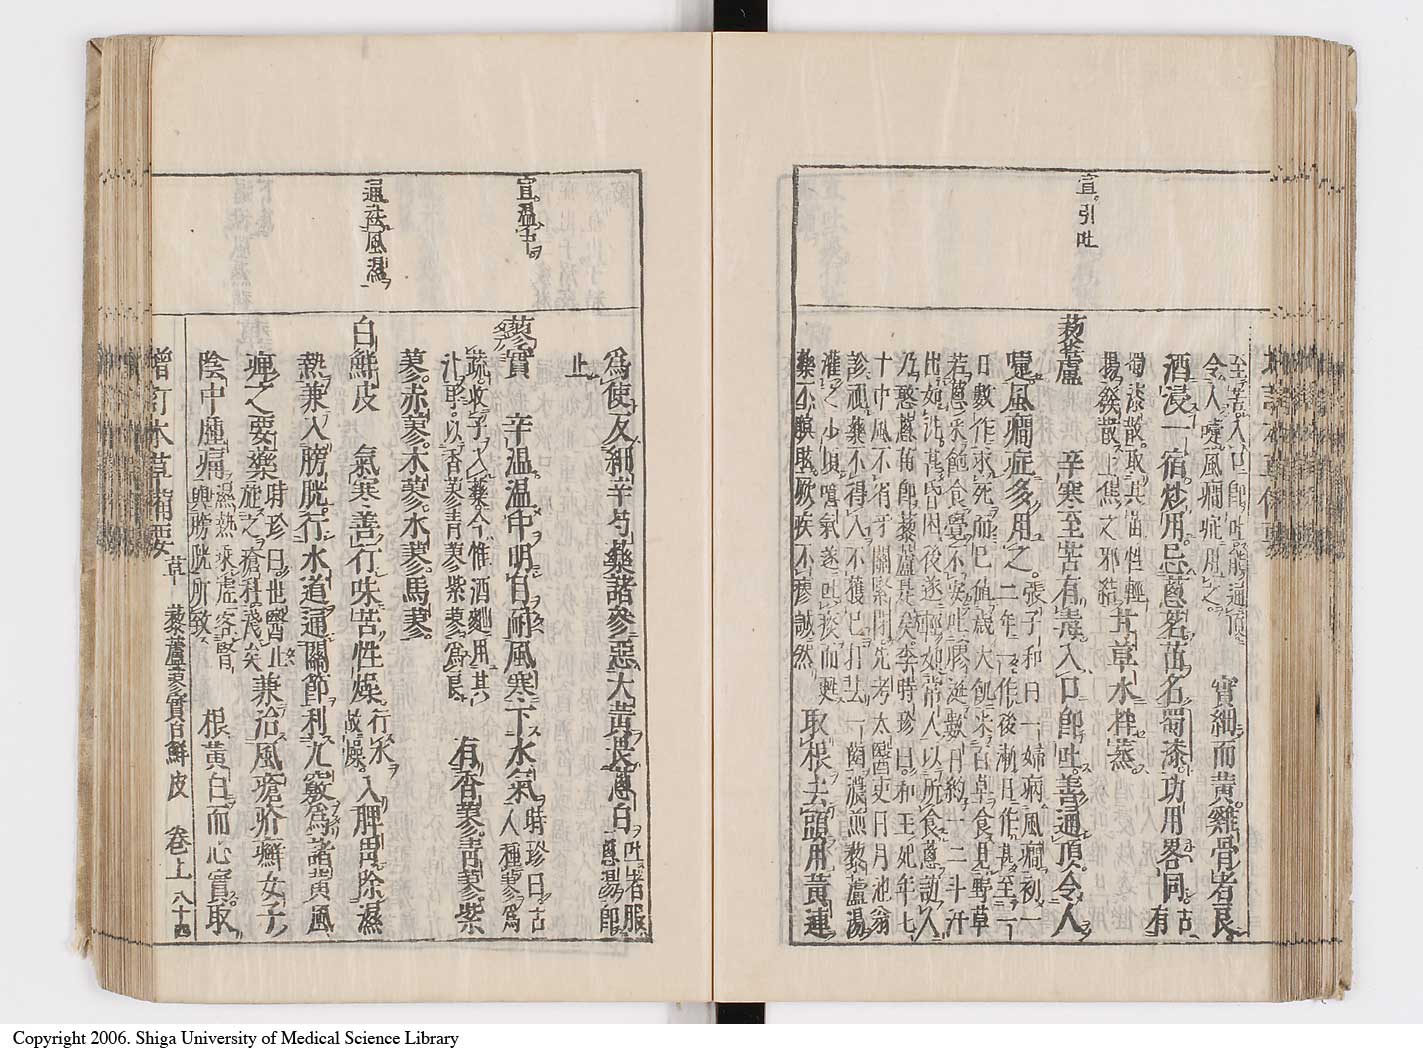 宣。引吐
至苦入口卽吐。兼通頂。
令人嚏風癇症用之。
實細而黃。雞骨者良
酒浸一宿炒用。忌葱茗苗名蜀漆。功用畧同
古有
蜀漆散。取其苗性輕
揚發散上焦之邪結
甘草水拌蒸。
藜蘆 辛寒至苦有毒。入口卽吐。善通頂令人
嚏。風癇症多用之。
張子和曰一婦病風癇。初一
二年一作。後漸日作。甚至一
日數作求死而已。値歲大飢。采百草食。見野草
若葱。采飽食。覺不安。吐膠涎數日。約一二斗。汗
出如洗。甚昏困。後遂輕如常人。以所食葱訪人
乃憨葱苗。卽藜蘆是矣。李時珍曰。和王妃年七
十中風不省。牙關緊閉。先考太醫吏目月池翁
診視。藥不得入。不獲已打去一齒。濃煎藜蘆湯
灌之。少頃噫氣。遂吐痰而甦
藥不瞑眩。厥疾不瘳。誠然
取根去頭用。黃連
宣。溫中
通。祛風濕
爲使。反細辛芍藥諸參。惡大黃。畏葱白
吐者服
葱湯卽
止
蓼實 辛溫。溫中明目。耐風寒。下水氣。
時珍曰。古
人種蓼爲
蔬。收子入藥。今惟酒麯用其
汁耳。以香蓼靑蓼紫蓼爲良
有香蓼。靑蓼。紫
蓼。赤蓼。木蓼。水蓼。馬蓼。
白鮮皮 氣寒善行。味苦性燥
行水
故燥。
入脾胃除濕
熱。兼入膀胱。行水道。通關節。利九竅。爲諸黃風
痺之要藥
時珍曰。世醫止
施之瘡科淺矣
兼治風瘡疥癬。女子
陰中腫痛
濕熱乘虛客腎
與膀胱所致
根黃白而心實。取
增訂本草備要 草 藜蘆 蓼實 白鮮皮 卷上 八十四
Copyright 2006. Shiga University of Medical Science Library